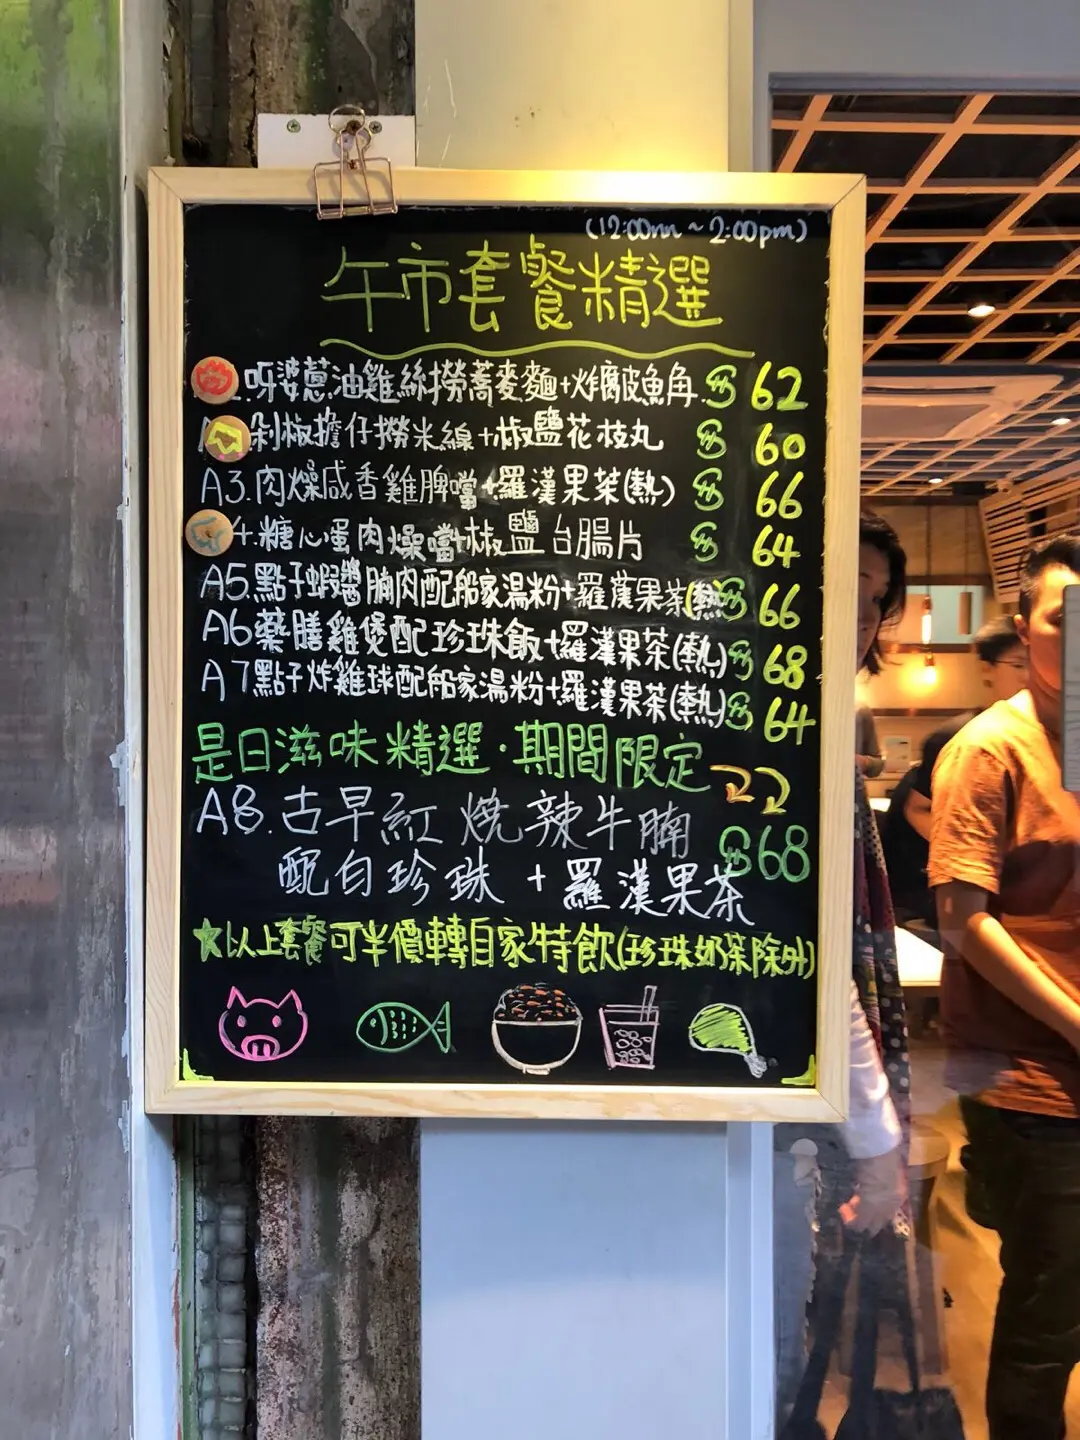 (12:00nn ~ 2:00pm)
午市套餐精選
呀婆蔥油雞絲撈蕎麥麵+炸腐皮魚角 $ 62
剁椒擔仔撈米線+椒鹽花枝丸 $ 60
A3.肉燥咸香雞脾噹+羅漢果茶(熱) $ 66
4.糖心蛋肉燥噹+椒鹽台腸片 $ 64
A5.點子蝦醬腩肉配船家湯粉+羅漢果茶(熱) $ 66
A6藥膳雞煲配珍珠飯+羅漢果茶(熱) $ 68
A7點子炸雞球配船家湯粉+羅漢果茶(熱) $ 64
是日滋味精選·期間限定
A8.古早紅燒辣牛腩
配白珍珠+羅漢果茶 $68
★以上套餐可半價轉自家特飲(珍珠奶茶除外)